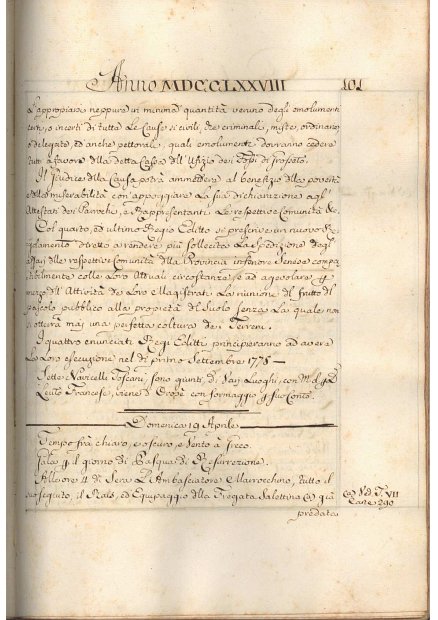 Anno MDCCLXXVIII 101
appropiarsi neppure in minima quantità veruno degli emolumenti
certi, o incerti di tutte Le Cause sì civili, che criminali, miste, ordinarie
o delegate, ed anche pettorali, quali emolumenti dovranno cedere
tutti a favore della detta Cassa dell' Ufizio dei Fossi di Grosseto.
Il Giudice della Causa potrà ammettere al benefizio della povertà
e della miserabilità con appoggiare La sua dichiarazione agl'
Attestati dei Parrochi, e Rappresentanti Le respettive Comunità &c.
Col quarto, ed ultimo Regio Editto si prescrive un nuovo Re-
golamento diretto a rendere più sollecita La spedizione degl'
affari delle respettive Comunità della Provincia inferiore Senese compa-
tibilmente colle Loro attuali circostanze, e ad agevolare p
mezzo dell' Attività dei Loro Magistrati La riunione del frutto del
pascolo pubblico alla proprietà del Suolo senza La quale non
si otterrà mai una perfetta coltura de' Terreni.
I quattro enunciati Regi Editti principeranno ad avere
La Loro esecuzione nel dì primo Settembre 1778 —
Sette Navicelli Toscani, sono giunti, di Vari Luoghi, con
Leuto Francese, viene d' con formaggio p suo Conto.
Domenica 19 Aprile
Tempo frà chiaro, e oscuro, e Vento à Greco.
Gala p il giorno di Pasqua di Resurrezione.
Alle ore 4 di Sera L' Ambasciatore Marrocchino, tutto il
suo seguito, il Raìs, ed Equipaggio della Fregata Salettina (a) quà
predata
(a) Vd. T. VII
Carte 290